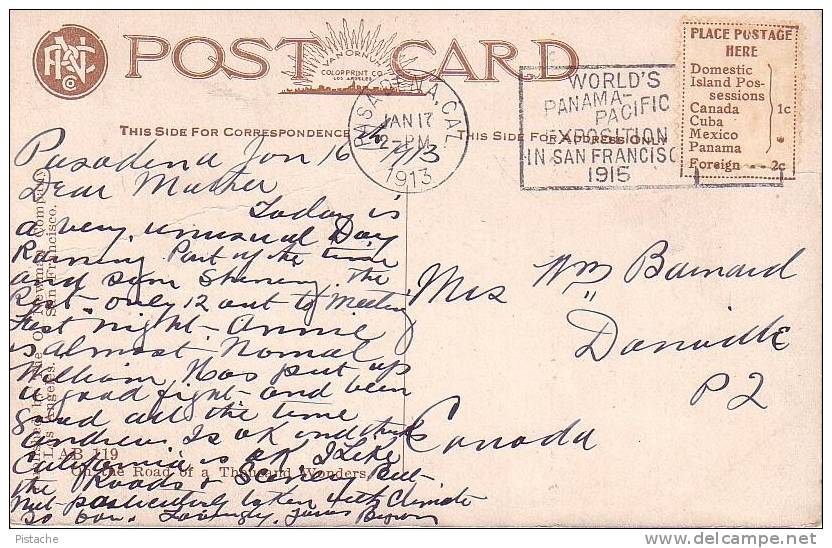 POST CARD
VAN ORNUM
COLORPRINT CO.
LOS ANGELES
PLACE POSTAGE
HERE
Domestic
Island Pos-
sessions
Canada 1c
Cuba
Mexico
Panama
Foreign -- 2c
PASADENA, CAL.
JAN 17
2-PM
1913
WORLD'S
PANAMA-
PACIFIC
EXPOSITION
IN SAN FRANCISC
1915
THIS SIDE FOR CORRESPONDENCE
THIS SIDE FOR ADDRESS ONLY
Pasadena Jan 16th 1913
Dear Mother
Today is
a very unusual Day
Raining Part of the time
and sun Shining the
Rest - only 12 out to Meeting
last night - Annie
is almost Nomal
William Has put up
a good fight - and been
good all the time
Andrew Is OK and thinks
California is OK I Like
the Roads & Scenery But
not particularly taken with Climate
So Lovingly
Mrs Wm Barnard
Danville
P2
Canada
Newman Company
Los Angeles. San Francisco.
AB 119
On the Road of a Thousand Wonders
Pistache
delcampe.net